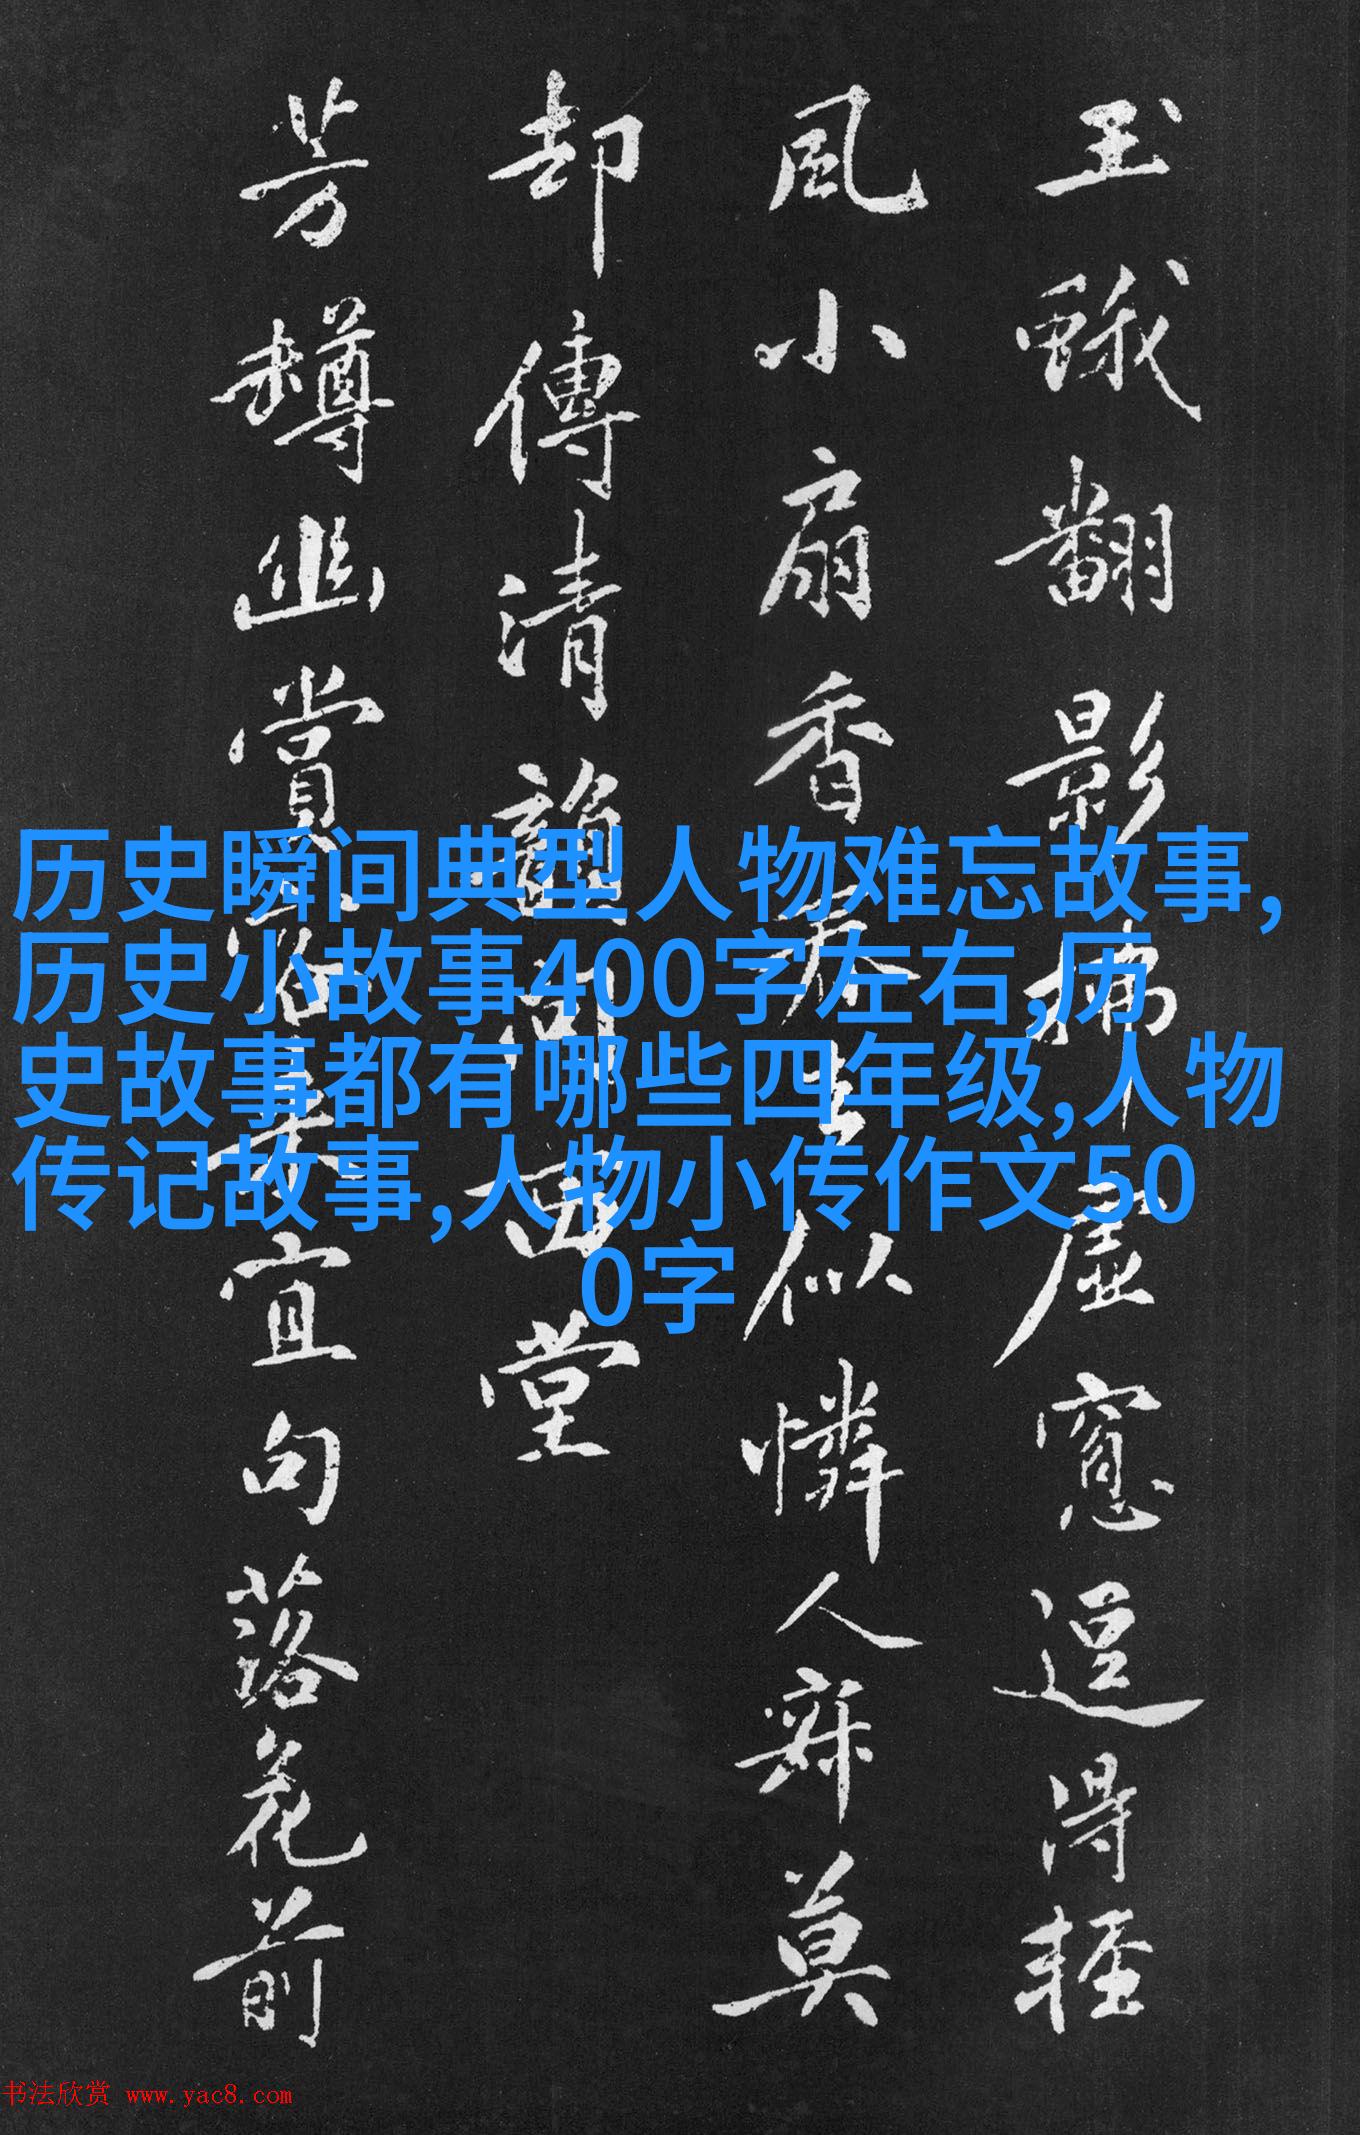 玉蛾翻影拂虛窻逗得輕
風小扇香似憐人寐莫
却傳清韻向西堂
芳樽幽賞宜句落花前
历史瞬间典型人物难忘故事,
历史小故事400字左右,历
史故事都有哪些四年级,人物
传记故事,人物小传作文50
0字
书法欣赏 www.yac8.com